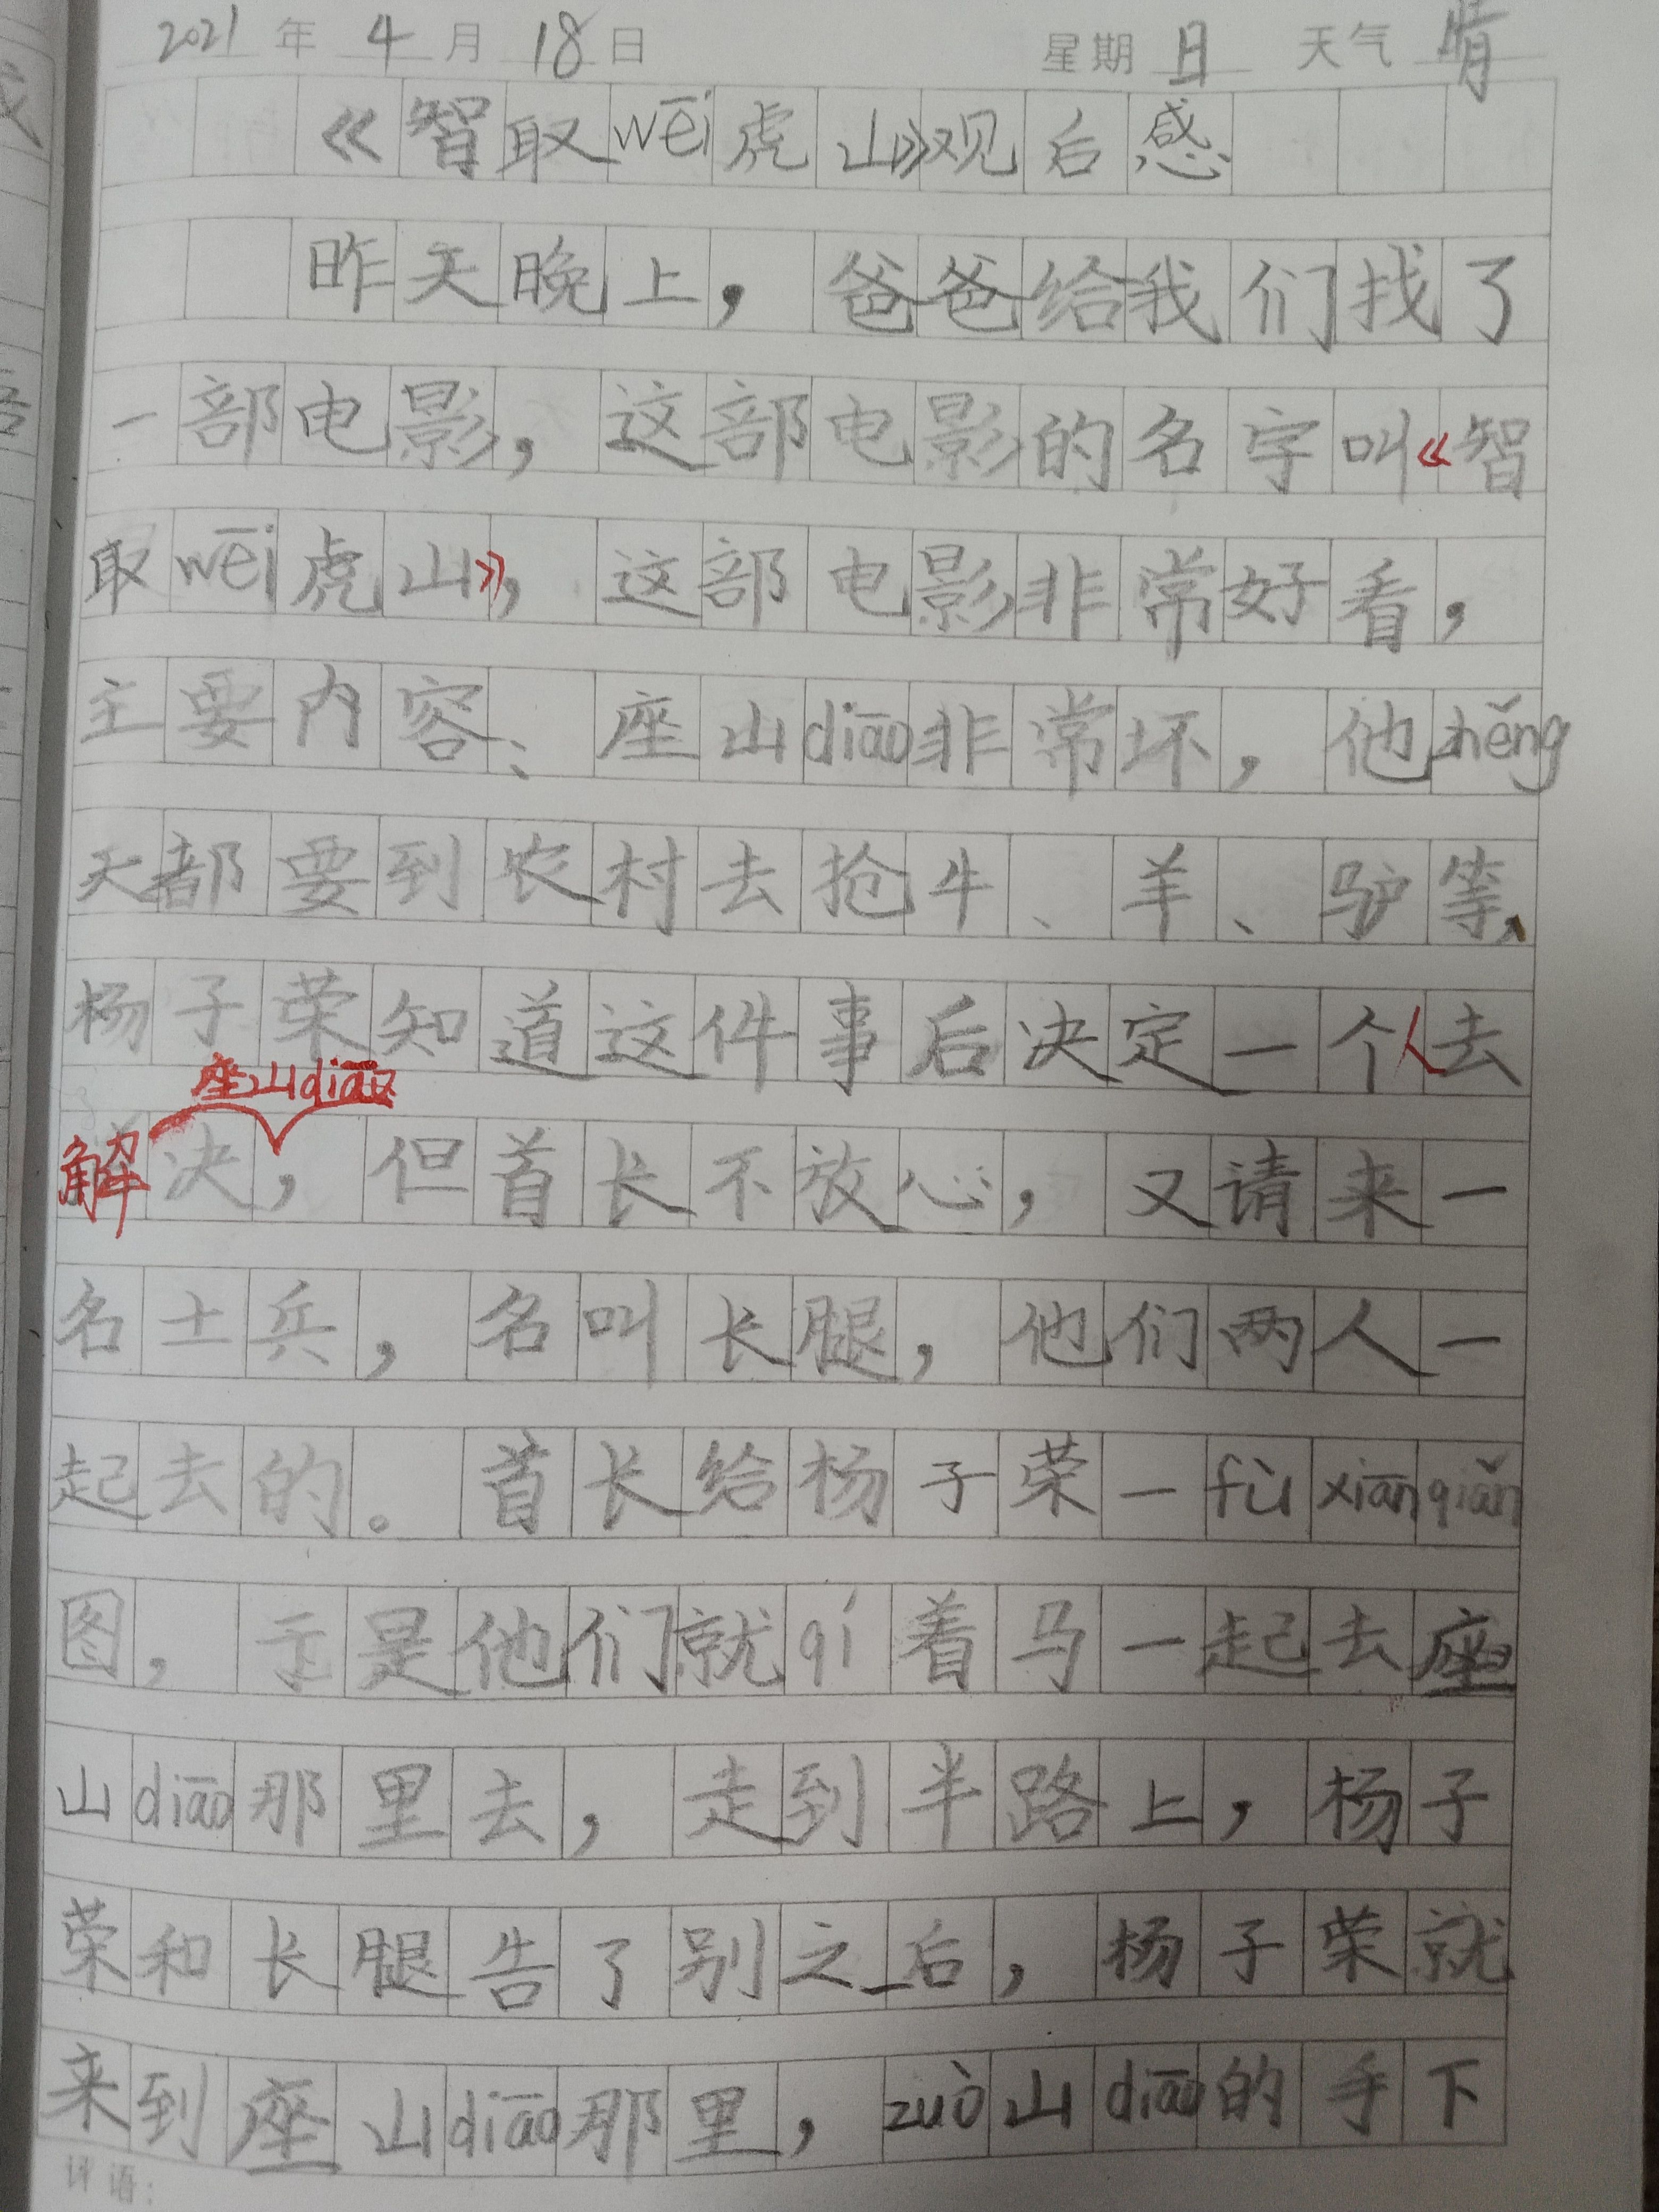 2021 年 4 月 18 日 星期 日 天气 晴
《智取wēi虎山》观后感
昨天晚上，爸爸给我们找了
一部电影，这部电影的名字叫《智
取wēi虎山》，这部电影非常好看，
主要内容、座山diāo非常坏，他zhěng
天都要到农村去抢牛、羊、驴等，
杨子荣知道这件事后决定一个人去
座山diāo
解决，但首长不放心，又请来一
名士兵，名叫长腿，他们两人一
起去的。首长给杨子荣一fù xiānqiǎn
图，于是他们就qí着马一起去座
山diāo那里去，走到半路上，杨子
荣和长腿告了别之后，杨子荣就
来到座山diāo那里，zuò山diāo的手下
评语：